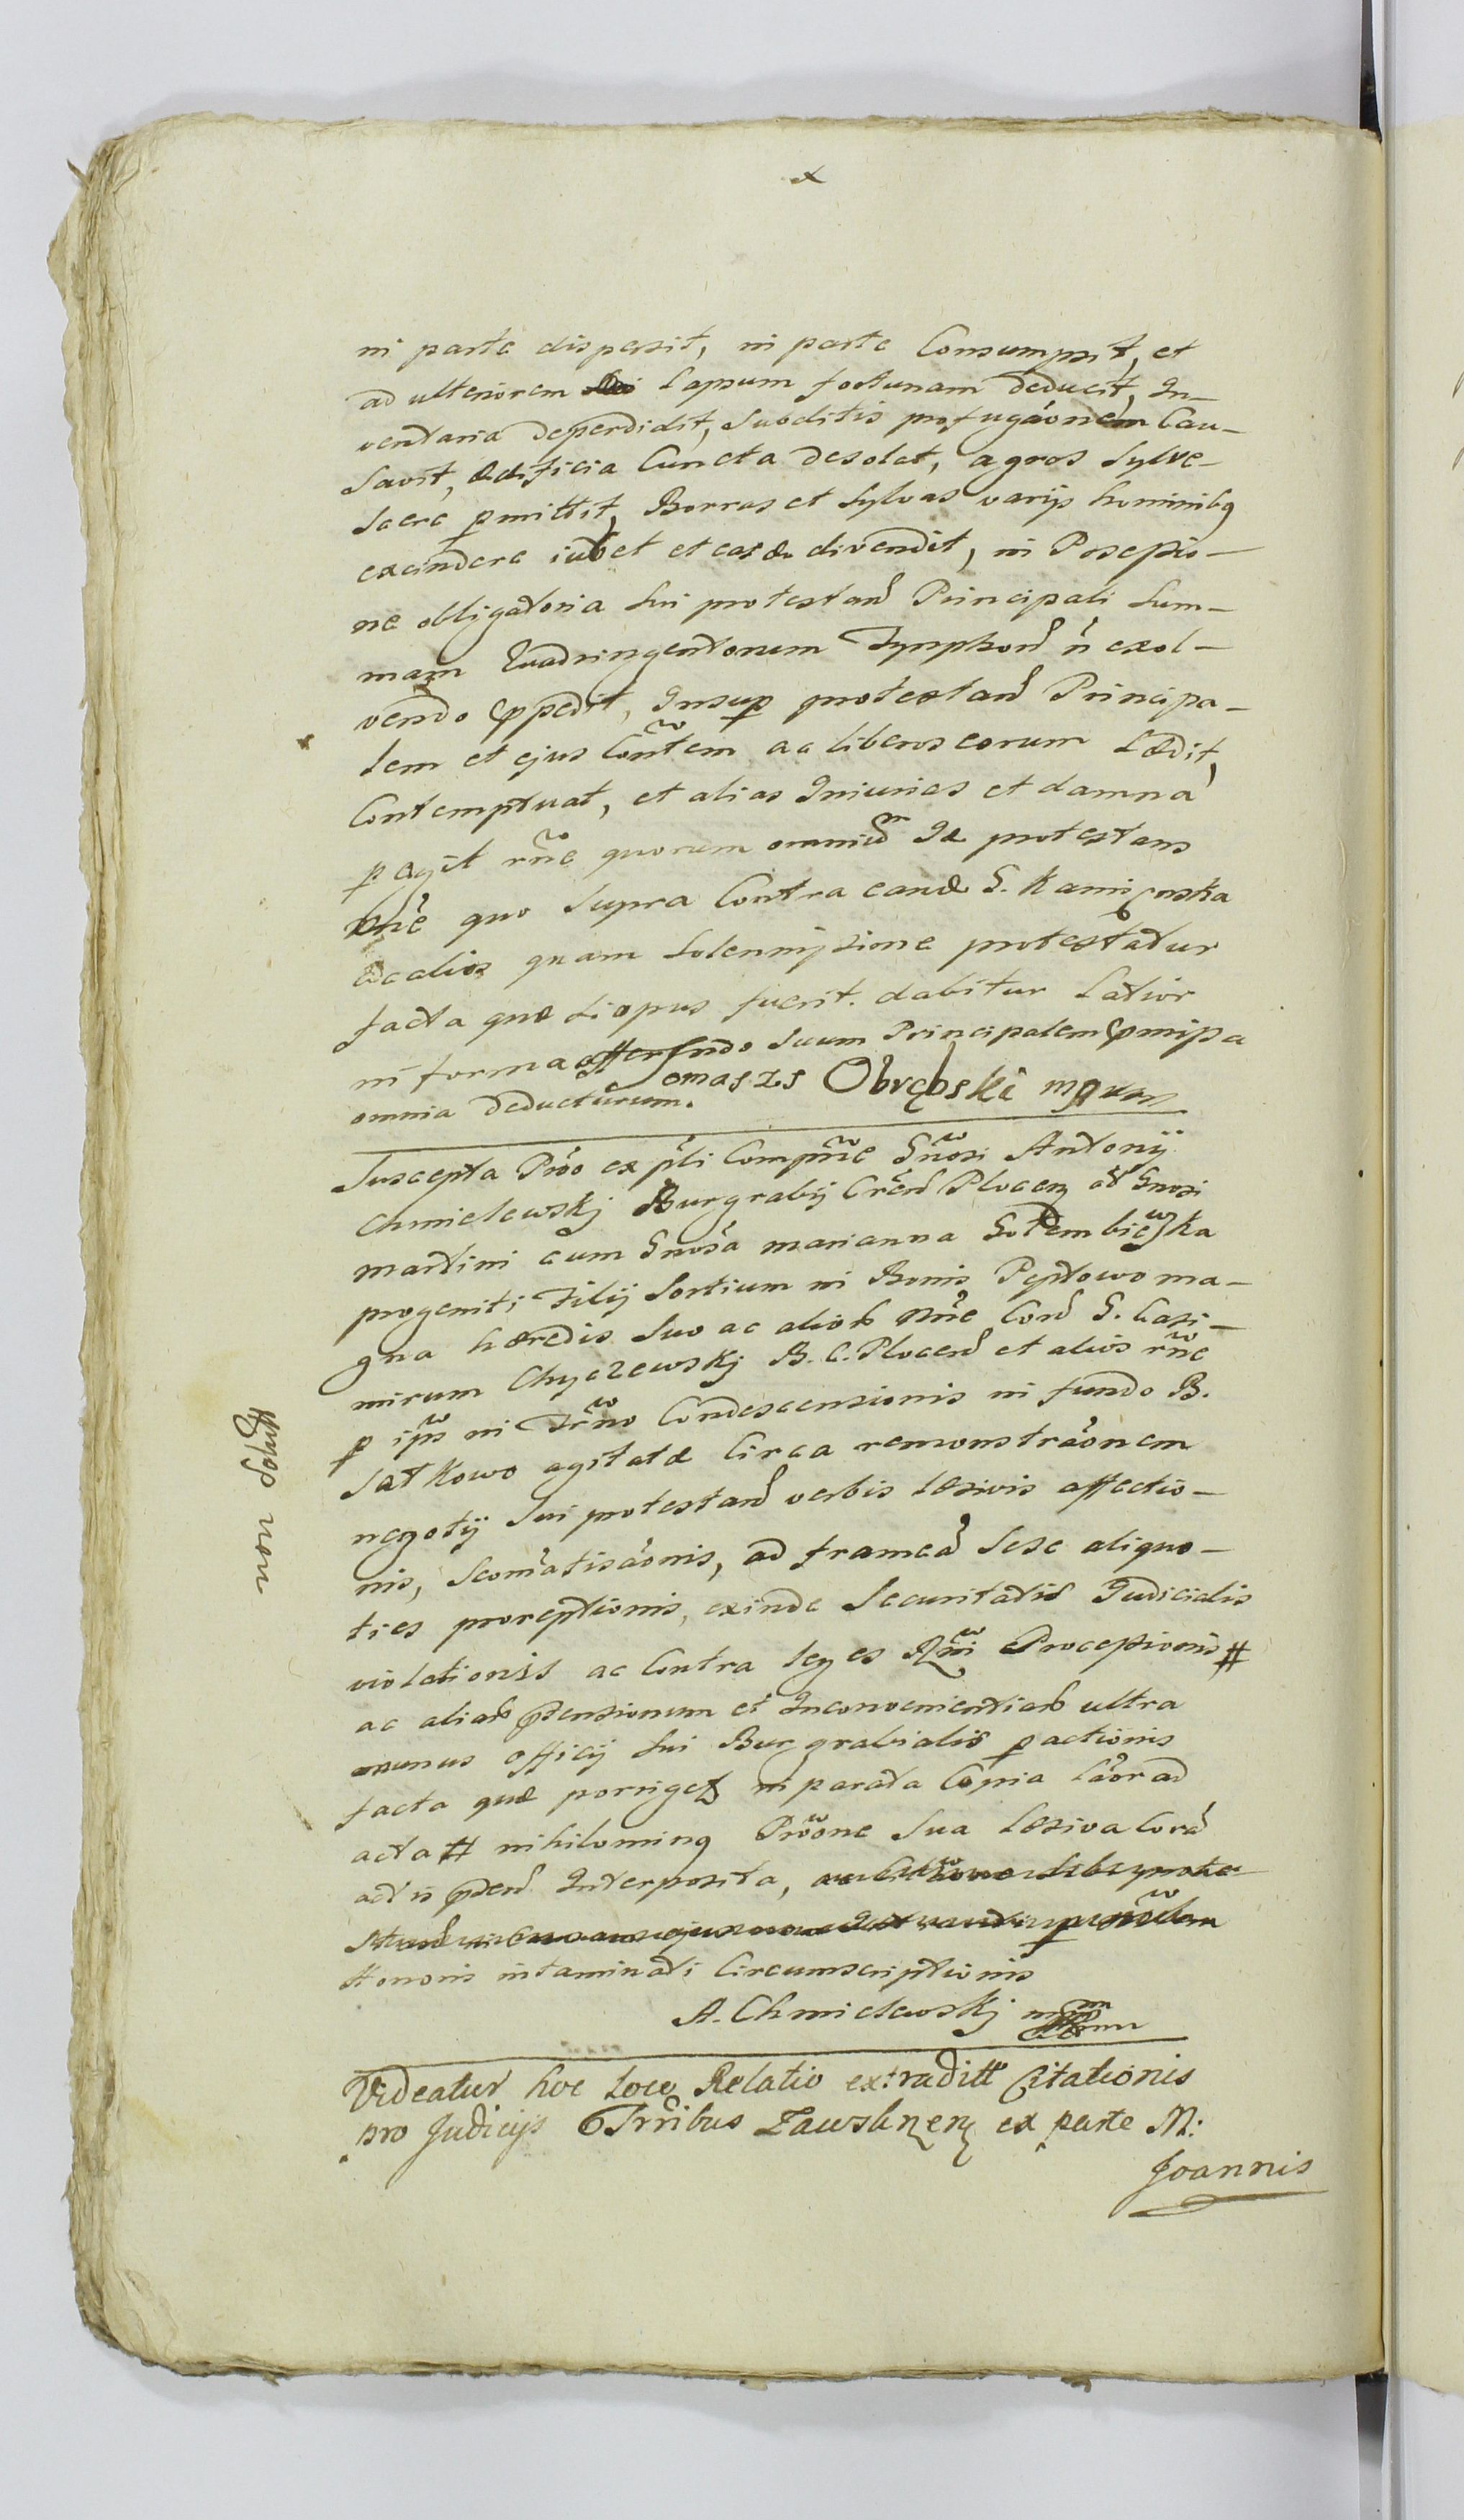 x
in parte dispersit, in parte Consumpsit, et
ad ulteriorem Lapsum fortunam deducit, In-
ventaria deperdidit, Subditis profugaonem Cau-
savit, ædificia Cuncta desolat, agros Sylve-
scere pmittit, Borras et Sylvas varijs hominibq
excindere iubet et easdæ divendit, in Possessio-
ne obligatoria Sui protestand Principali Sum-
mam Quadringentorum Tynphond n exol-
vendo, Insup protestand Principa-
lem et ejus Contem ac liberos eorum Lædit,
Contemptuat, et alias Iniurias et damna
p egit rne quorum omniu Ie protestans
nne quo Supra Contra eandæ G. Kami
ac alios quam Solennissime protestatur
facta quæ si opus fuerit dabitur Latior
in forma offerendo Suum Principalem
omnia deducturum.
omasz Obrębski mqvor
Suscepta Proo ex pti Comprne Gnosi Antonij
Chmielewskj Burgrabij Crend Plocen ad Gnosi
Martini cum Gnosa Marianna Gołembiewska
progeniti Filij Sortium in Bonis Peptowo ma-
gna hæredis Suo ac alior nne Cord G. Casi-
mirum Chyczewskj B. C. Plocend et alios rne
p ips in Trno Condescensionis in fundo B.
Satkowo agitatæ Circa remonstraonem
negotij Sui protestand verbis læsivis affectio-
nis, Scomatisaonis, ad frameа Sese aliquo-
ties proreptionis, exinde Securitatis Judicialis
violationis ac Contra leges Rni Processionis #
ac aliar ptensionum et Inconvenientiar ultra
munus officij Sui Burgrabialis pactionis
facta quæ porriget in parata Copia Laor ad
acta # nihilominq Prone Sua læsiva Cord
actis pdend Interposita,
Honoris intaminati Circumscriptionis
A. Chmielewskj mp
Videatur hoc Loco Relatio extradit Citationis
pro Judicijs Trribus Zawskrzen ex parte M:
Joannis
non